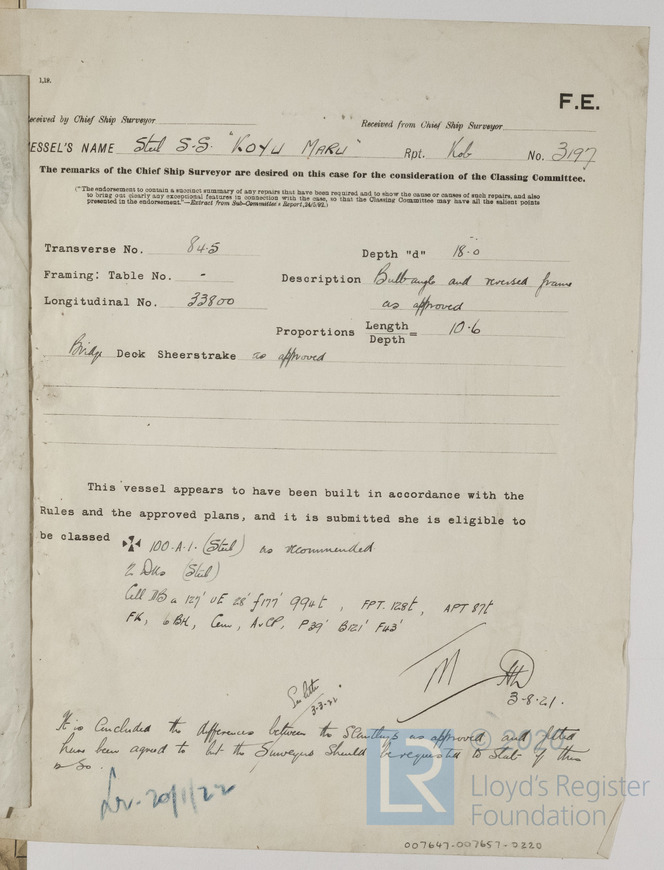 1,19.
F.E.
eceived by Chief Ship Surveyor
Received from Chief Ship Surveyor
ESSEL'S NAME Steel S.S. "KOYU MARU" Rpt. Kob No. 3197
The remarks of the Chief Ship Surveyor are desired on this case for the consideration of the Classing Committee.
("The endorsement to contain a succinct summary of any repairs that have been required and to show the cause or causes of such repairs, and also
to bring out clearly any exceptional features in connection with the case, so that the Classing Committee may have all the salient points
presented in the endorsement."—Extract from Sub-Committee's Report, 24/5/92.)
Transverse No. 84.5
Depth "d" 18.0
Framing: Table No. -
Description Bulb angle and reversed frame
Longitudinal No. 33800
as approved
Proportions Length/Depth = 10.6
Bridge Deck Sheerstrake as approved
This vessel appears to have been built in accordance with the
Rules and the approved plans, and it is submitted she is eligible to
be classed ✠ 100.A.1. (Steel) as recommended
2 Dks (Steel)
Cell DB a 127' UE 28' f 177' 994t, FPT. 128t, APT 87t
FK, 6 BH, Cem, A&CP, P39' B121' F43'
3-8-21.
See letter
3-3-22
It is concluded the differences between the Scantlings as approved and fitted
have been agreed to but the Surveyors should be requested to state if this
is so.
Lr. 20/1/22
© 2020
LR
Lloyd's Register
Foundation
007647-007657-0220